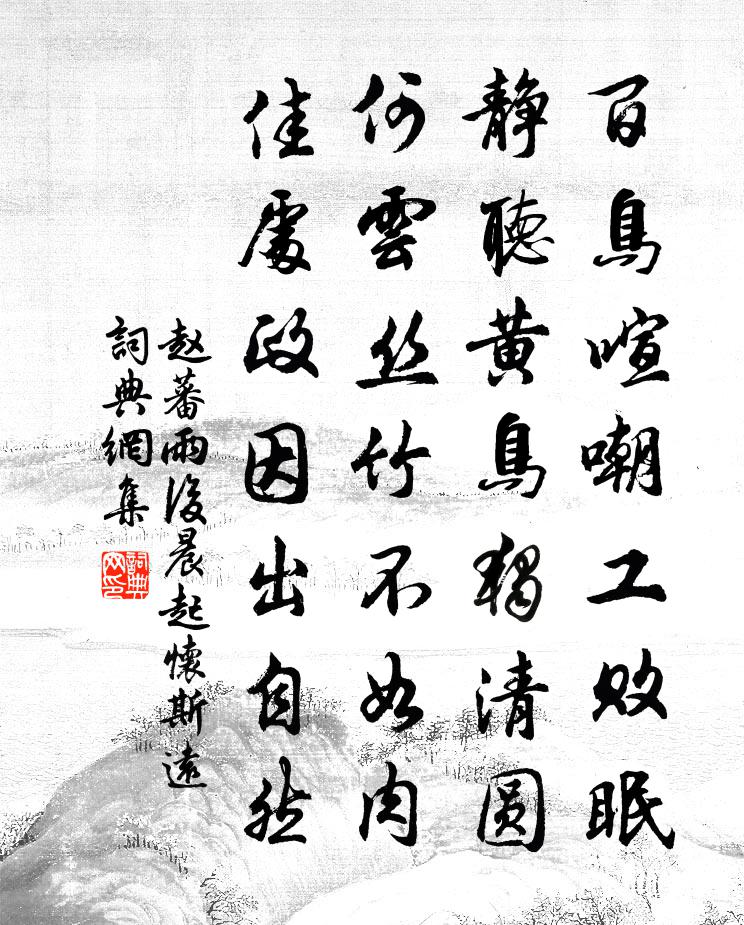 百鳥喧嘲工敗眠
静聴黄鳥獨清圓
何雲丝竹不如肉
佳處政因出自然
赵蕃雨後晨起懷斯遠
詞典網集
詞典網印